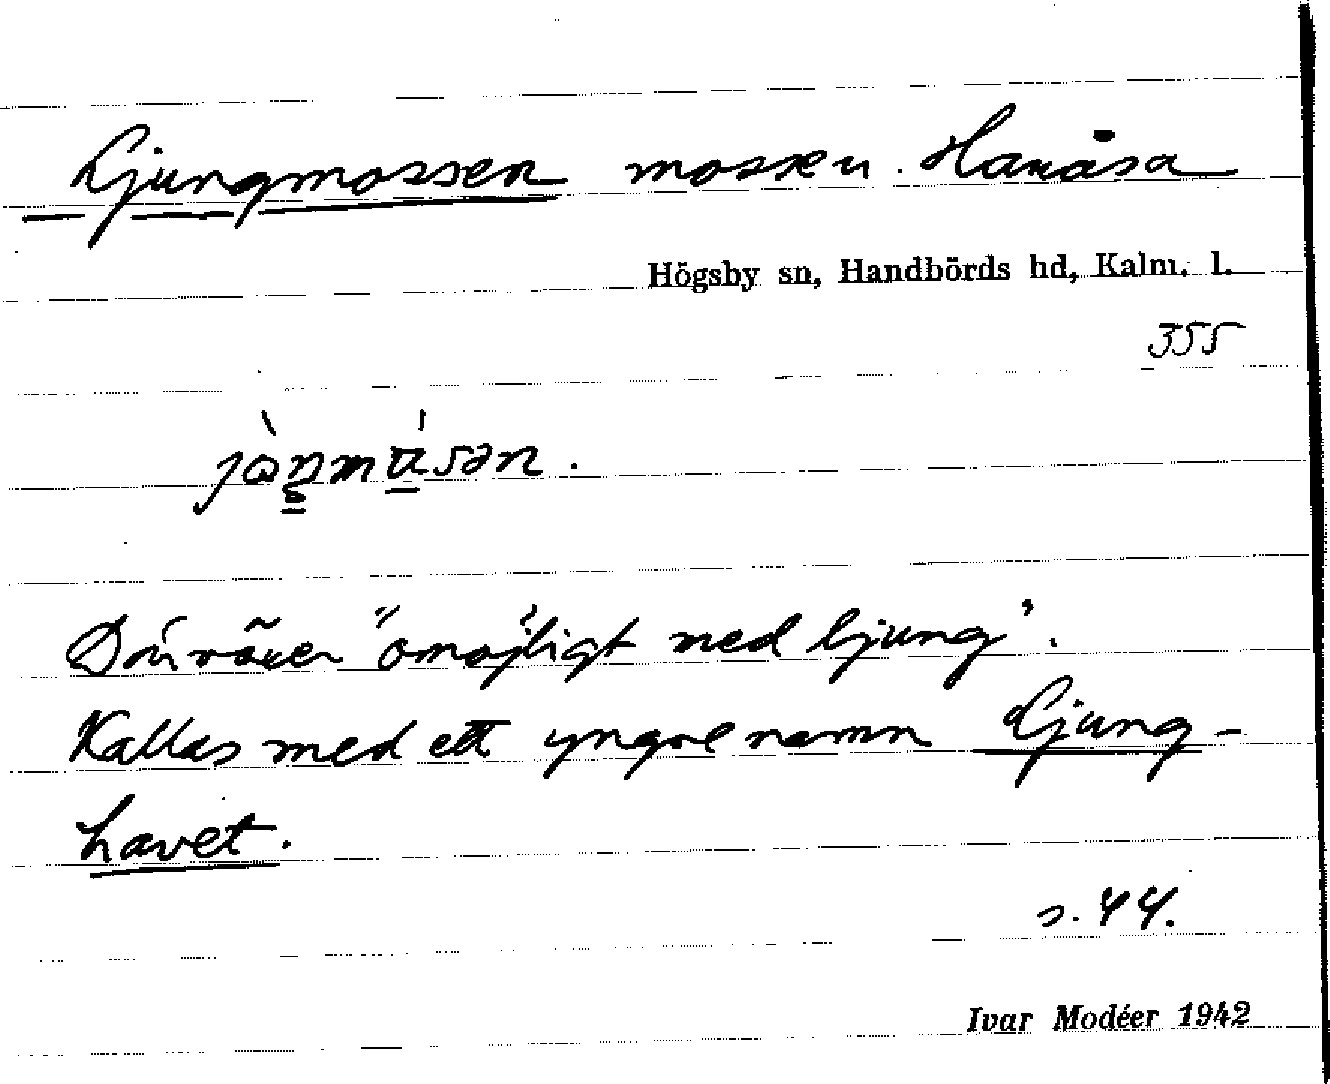 Ljungmossen mossen. Hanåsa
Högsby sn, Handbörds hd, Kalm. l.
355
Där växer "omöjligt med ljung".
Kallas med ett yngre namn Ljung-
havet.
s. 44.
Ivar Modéer 1942